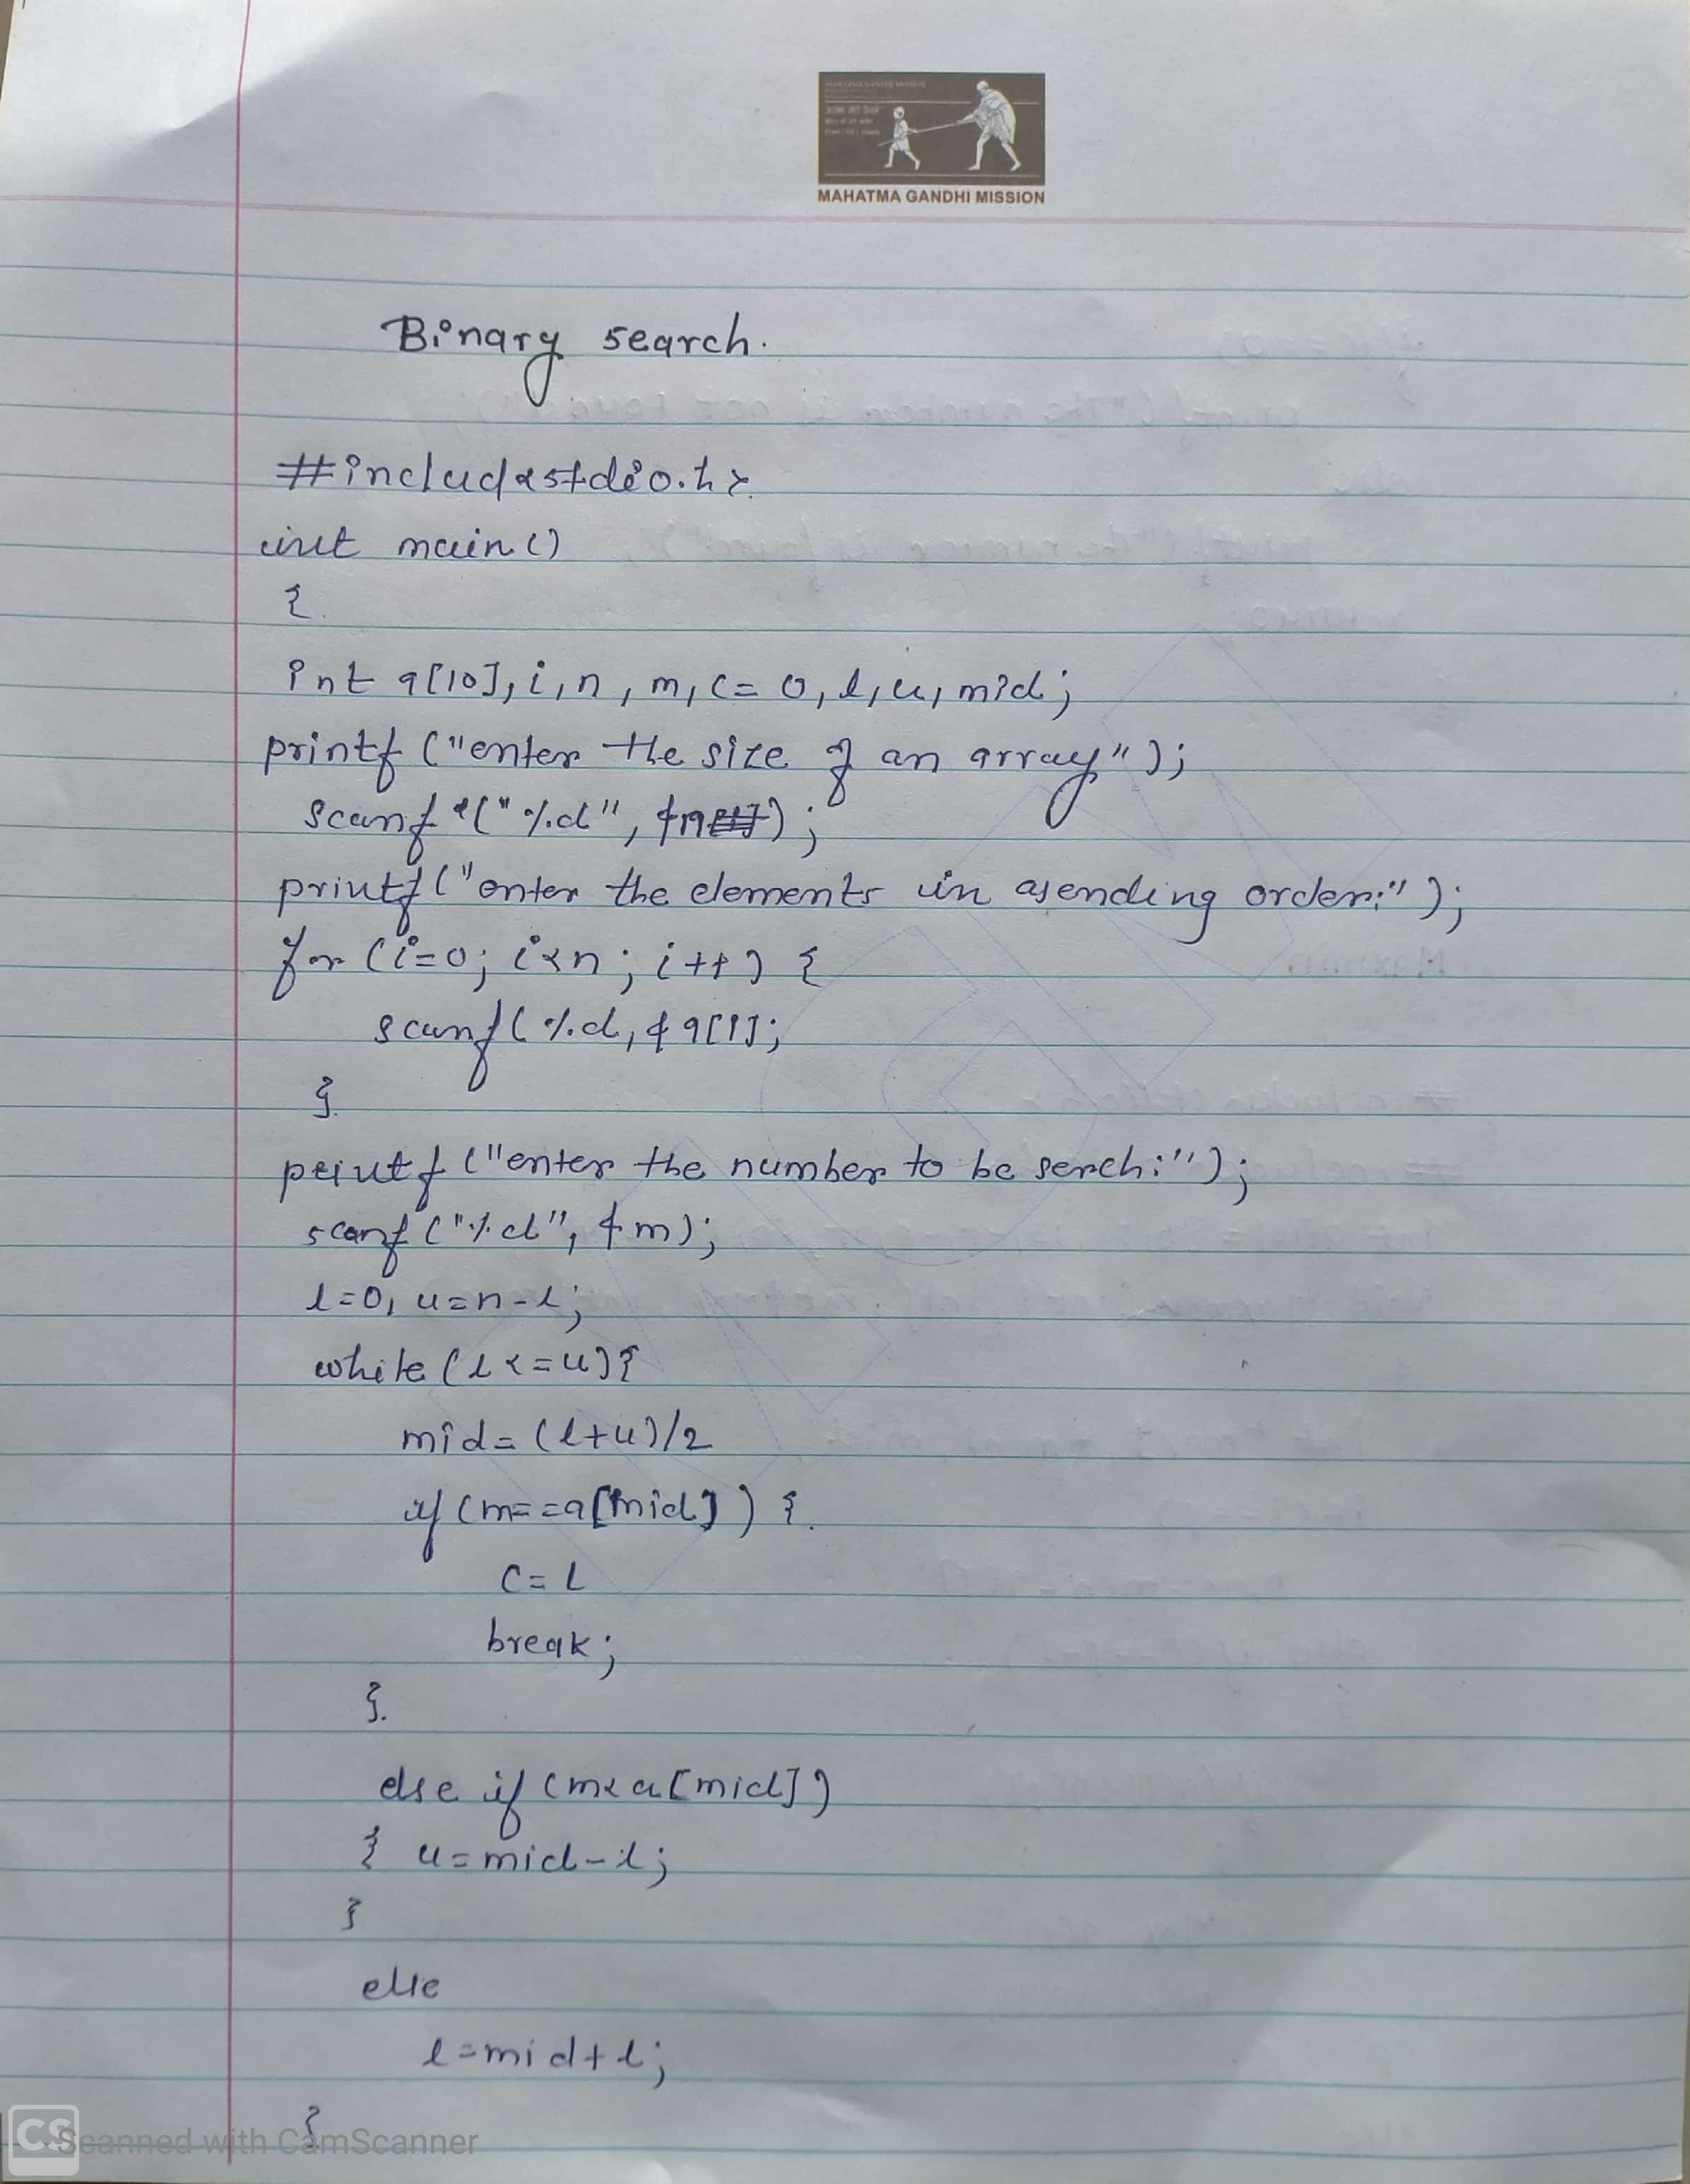 MAHATMA GANDHI MISSION
Binary search.
#includ<stdio.h>
int main()
{
int a[10], i, n, m, c=0, l, u, mid;
printf ("enter the size of an array");
scanf ("%d", &n);
printf ("enter the elements in asending order:");
for (i=0; i<n; i++) {
scanf(%d, &a[i];
}
printf ("enter the number to be serch:");
scanf ("%d", &m);
l=0, u=n-1;
while (l<=u){
mid=(l+u)/2
if (m==a[mid]) {
c=1
break;
}
else if (m<a[mid])
{ u=mid-1;
}
else
l=mid+1;
}
CS Scanned with CamScanner